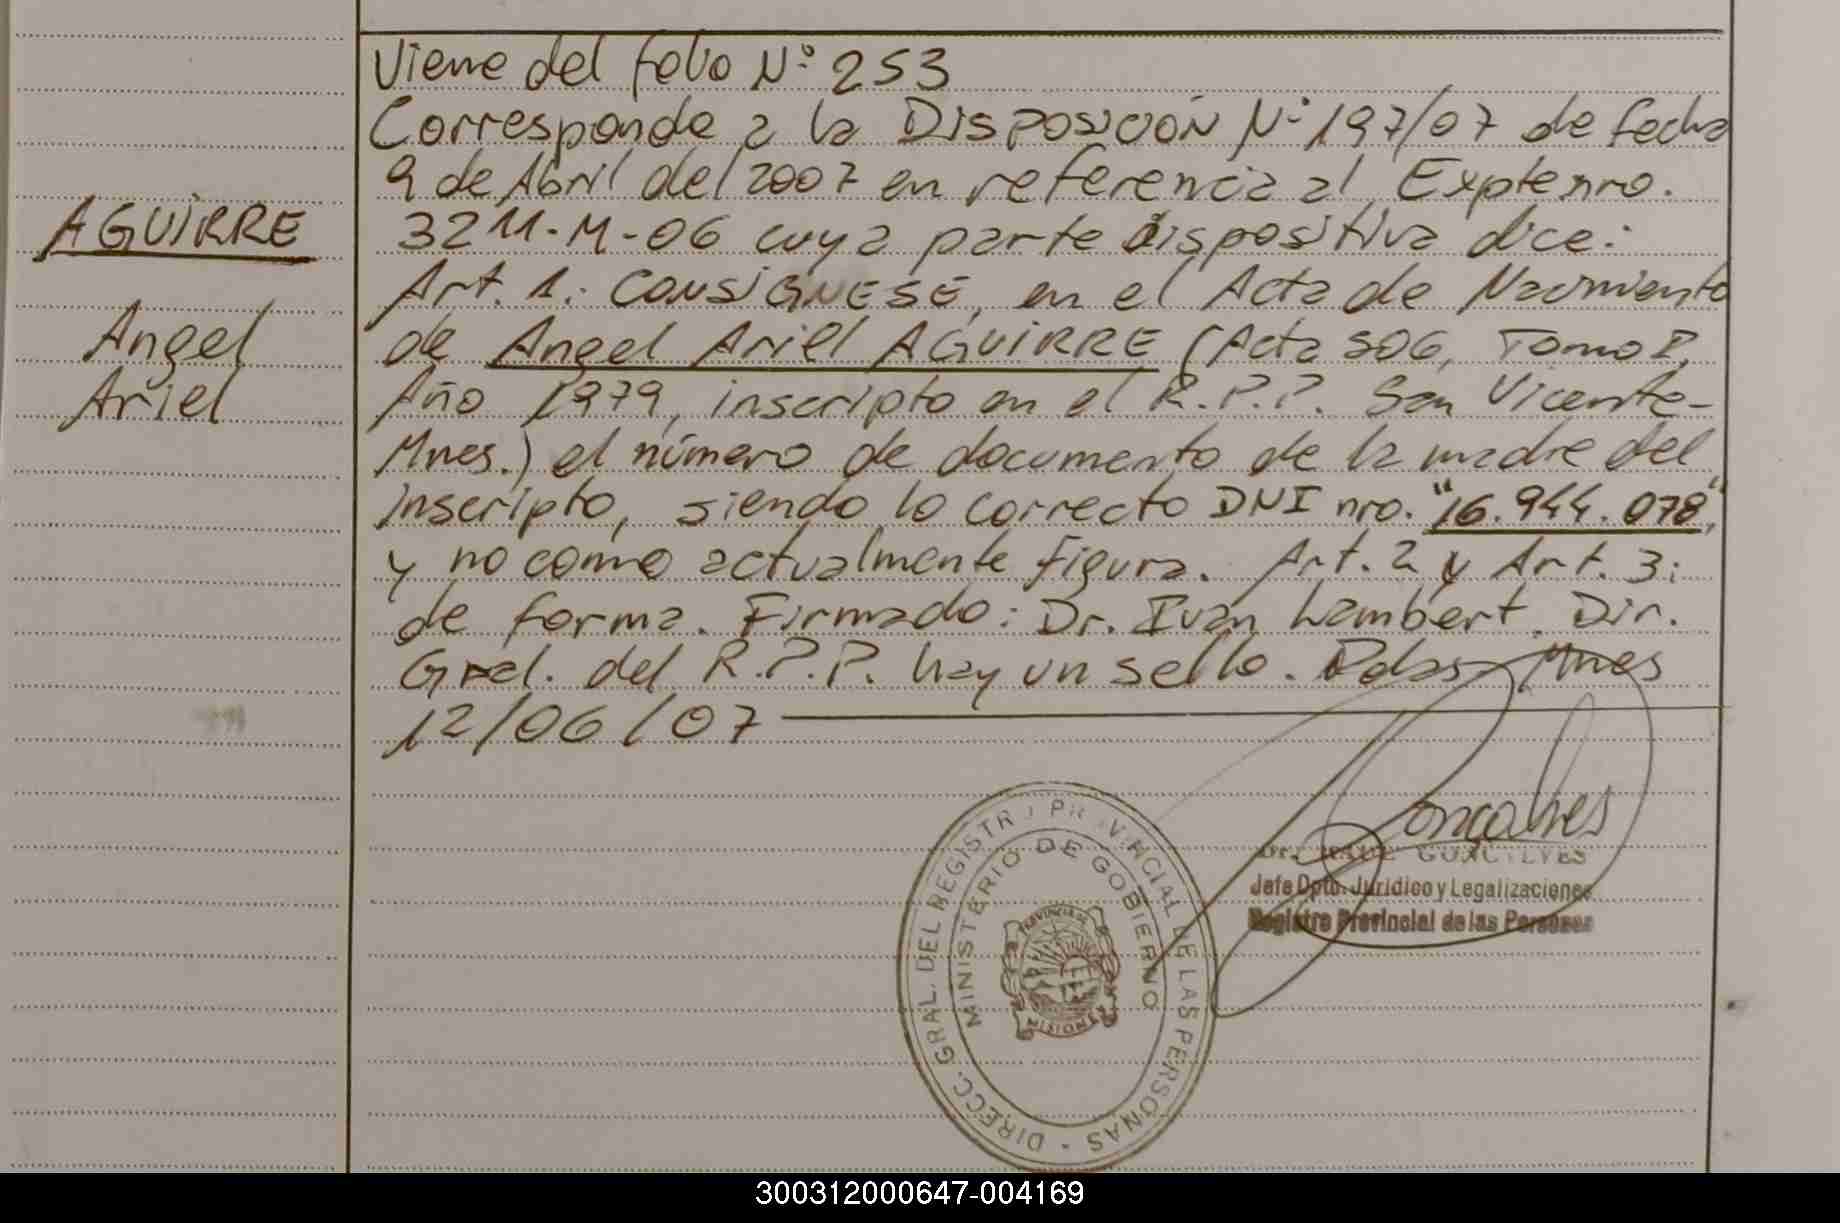 Viene del folio N° 253
Corresponde a la Disposición N° 197/07 de fecha
9 de Abril del 2007 en referencia al Expte nro.
AGUIRRE
3211-M-06 cuya parte dispositiva dice:
Art. 1: CONSIGNESE, en el Acta de Nacimiento
Angel
de Angel Ariel AGUIRRE (Acta 506, Tomo I,
Ariel
Año 1979, inscripto en el R.P.P. San Vicente-
Mnes.) el número de documento de la madre del
inscripto, siendo lo correcto DNI nro. "16.944.078",
y no como actualmente figura. Art. 2 y Art. 3:
de forma. Firmado: Dr. Ivan Lambert. Dir.
Gral. del R.P.P. hay un sello. Pdas Mnes
12/06/07
DIRECC. GRAL. DEL REGISTRO PROVINCIAL DE LAS PERSONAS -
MINISTERIO DE GOBIERNO
PROVINCIA DE
MISIONES
Gonçalves
Dr. GONCALVES
Jefe Dpto. Jurídico y Legalizaciones
Registro Provincial de las Personas
300312000647-004169